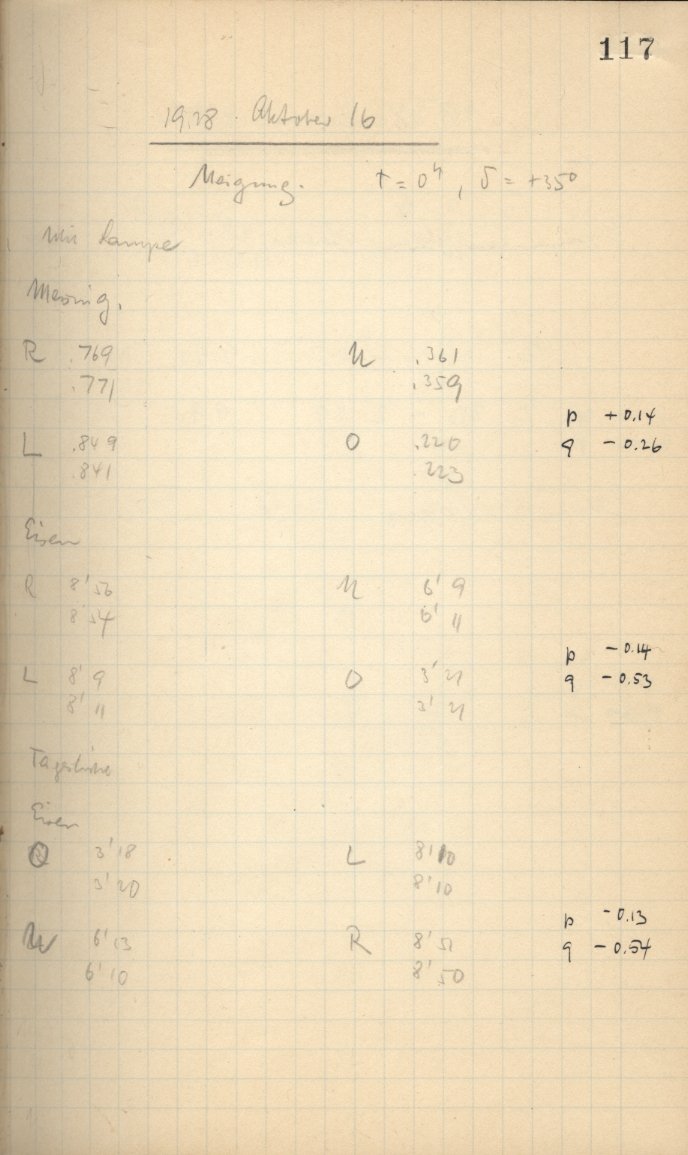 117
1928 Oktober 16
Neigung. τ = 0ʰ, δ = +35°
Mit Lampe
Messing.
R .769 U .361
.771 .359
p +0.14
L .849 O .220 q -0.26
.841 .223
Eisen
R 8' 56 U 6' 9
8' 54 6' 11
p -0.14
L 8' 9 O 3' 21 q -0.53
8' 11 3' 21
Tageslicht
Eisen
O 3' 18 L 8' 10
3' 20 8' 10
p -0.13
U 6' 13 R 8' 51 q -0.54
6' 10 8' 50